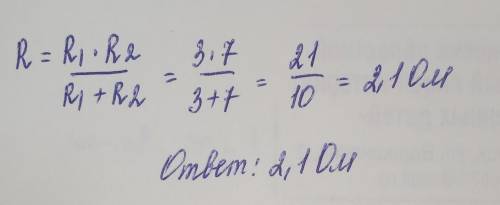 R = R1·R2 / R1+R2 = 3·7 / 3+7 = 21 / 10 = 2,1 Ом
Ответ: 2,1 Ом